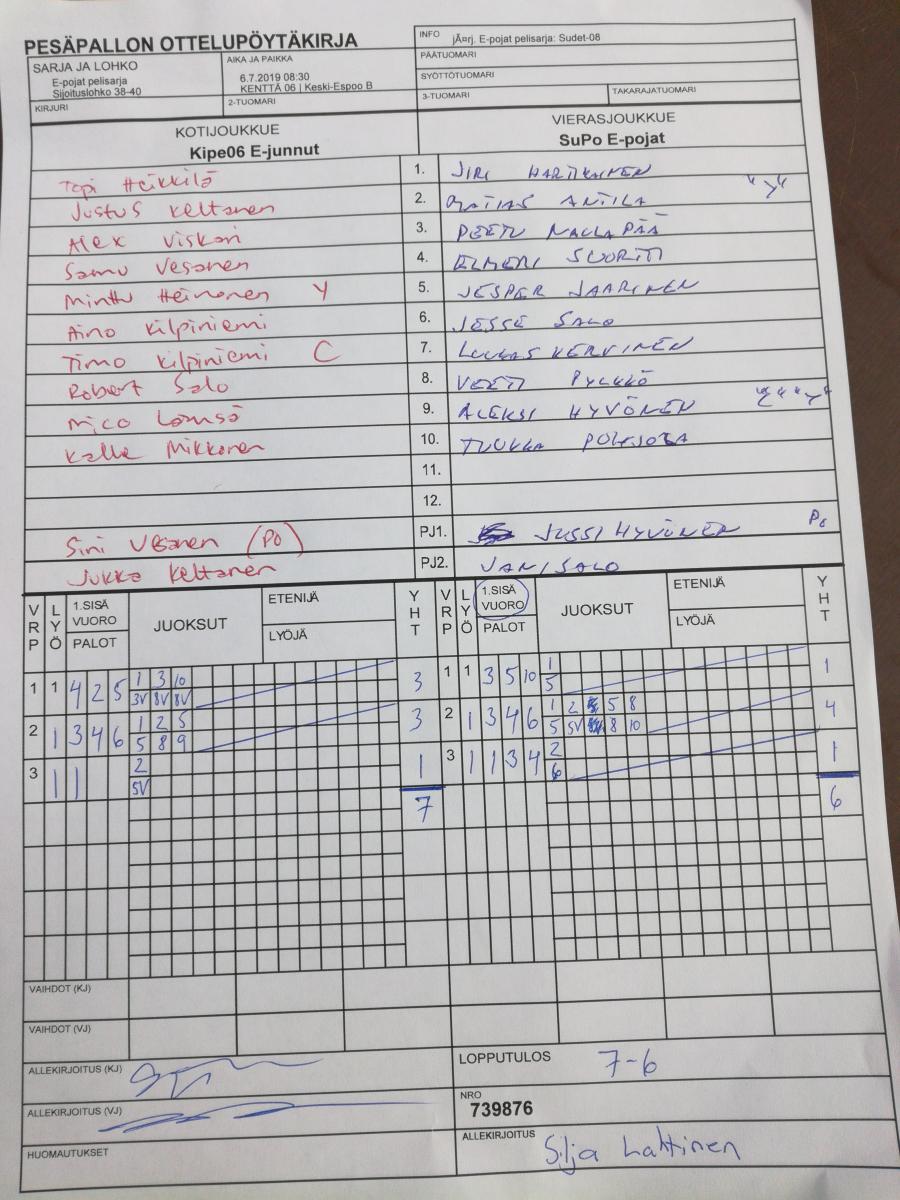 PESÄPALLON OTTELUPÖYTÄKIRJA
INFO jÃ¤rj. E-pojat pelisarja: Sudet-08
PÄÄTUOMARI
SYÖTTÖTUOMARI
3-TUOMARI TAKARAJATUOMARI
SARJA JA LOHKO
E-pojat pelisarja
Sijoituslohko 38-40
KIRJURI
AIKA JA PAIKKA
6.7.2019 08:30
KENTTÄ 06 | Keski-Espoo B
2-TUOMARI
KOTIJOUKKUE VIERASJOUKKUE
Kipe06 E-junnut SuPo E-pojat
Topi Heikkilä 1. JIRI HARTIKAINEN
Justus Keltanen 2. MATIAS ANTILA "Y"
Alex Viskari 3. PEETU NALLAPÄÄ
Samu Vesanen 4. ELMERI SUORTTI
Minttu Heinonen Y 5. JESPER JAARINEN
Aino Kilpiniemi 6. JESSE SALO
Timo Kilpiniemi C 7. LUUKAS KERVINEN
Robert Salo 8. VEETI PYLKKÖ
Mico Lamsä 9. ALEKSI HYVÖNEN
Kalle Mikkonen 10. TUUKKA POHJOLA
11.
12.
Sini Vesanen (PO) PJ1. JUSSI HYVÖNEN
Jukka Keltanen PJ2. JANI SALO
VRP LYÖ 1.SISÄ VUORO PALOT JUOKSUT ETENIJÄ LYÖJÄ YHT VRP LYÖ 1.SISÄ VUORO PALOT JUOKSUT ETENIJÄ LYÖJÄ YHT
1 1 4 2 5 1 3 10 3 1 1 3 5 10 1 1
3V 8V 8V 5
2 1 3 4 6 1 2 5 3 2 1 3 4 6 1 2 5 8 4
5 8 9 5 5V 8 10
3 1 1 2 1 3 1 1 3 4 2 1
5V 6
7 6
VAIHDOT (KJ)
VAIHDOT (VJ)
ALLEKIRJOITUS (KJ) LOPPUTULOS 7-6
ALLEKIRJOITUS (VJ) NRO
739876
HUOMAUTUKSET ALLEKIRJOITUS Silja Lahtinen